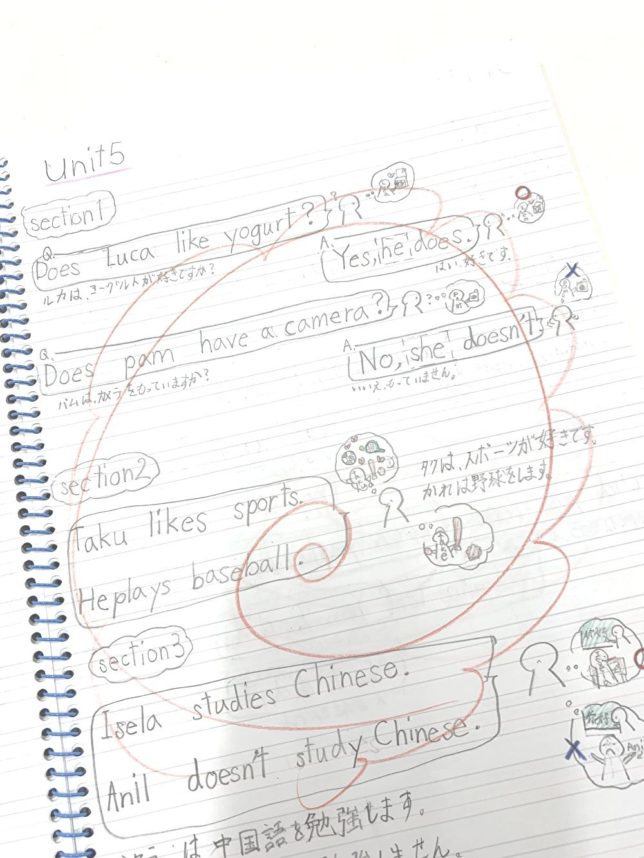 Unit5
section1
Q. Does Luca like yogurt?
ルカは、ヨーグルトが好きですか?
A. Yes, he does.
はい、好きです。
Q. Does pam have a camera?
パムは、カメラをもっていますか?
A. No, she doesn't
いいえ、もっていません。
section2
Taku likes sports.
He plays baseball.
タクは、スポーツが好きです。
かれは野球をします。
section3
Isela studies Chinese.
Anil doesn't study Chinese.
は中国語を勉強します。
勉強しません。